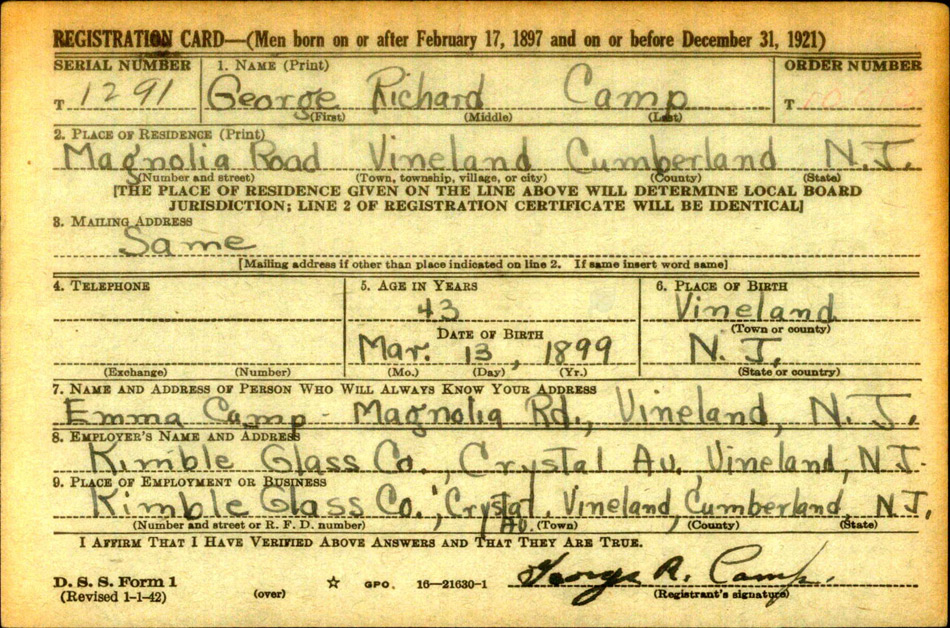 REGISTRATION CARD—(Men born on or after February 17, 1897 and on or before December 31, 1921)
SERIAL NUMBER 1. NAME (Print) ORDER NUMBER
T 1291 George Richard Camp T
(First) (Middle) (Last)
2. PLACE OF RESIDENCE (Print)
Magnolia Road Vineland Cumberland N.J.
(Number and street) (Town, township, village, or city) (County) (State)
[THE PLACE OF RESIDENCE GIVEN ON THE LINE ABOVE WILL DETERMINE LOCAL BOARD
JURISDICTION; LINE 2 OF REGISTRATION CERTIFICATE WILL BE IDENTICAL]
3. MAILING ADDRESS
Same
[Mailing address if other than place indicated on line 2. If same insert word same]
4. TELEPHONE 5. AGE IN YEARS 6. PLACE OF BIRTH
43 Vineland
DATE OF BIRTH (Town or county)
Mar. 13, 1899 N.J.
(Exchange) (Number) (Mo.) (Day) (Yr.) (State or country)
7. NAME AND ADDRESS OF PERSON WHO WILL ALWAYS KNOW YOUR ADDRESS
Emma Camp - Magnolia Rd., Vineland, N.J.
8. EMPLOYER'S NAME AND ADDRESS
Kimble Glass Co., Crystal Av. Vineland, N.J.
9. PLACE OF EMPLOYMENT OR BUSINESS
Kimble Glass Co., Crystal Av. Vineland, Cumberland, N.J.
(Number and street or R. F. D. number) (Town) (County) (State)
I AFFIRM THAT I HAVE VERIFIED ABOVE ANSWERS AND THAT THEY ARE TRUE.
D. S. S. Form 1 ☆ GPO 16—21630-1 George R. Camp.
(Revised 1-1-42) (over) (Registrant's signature)